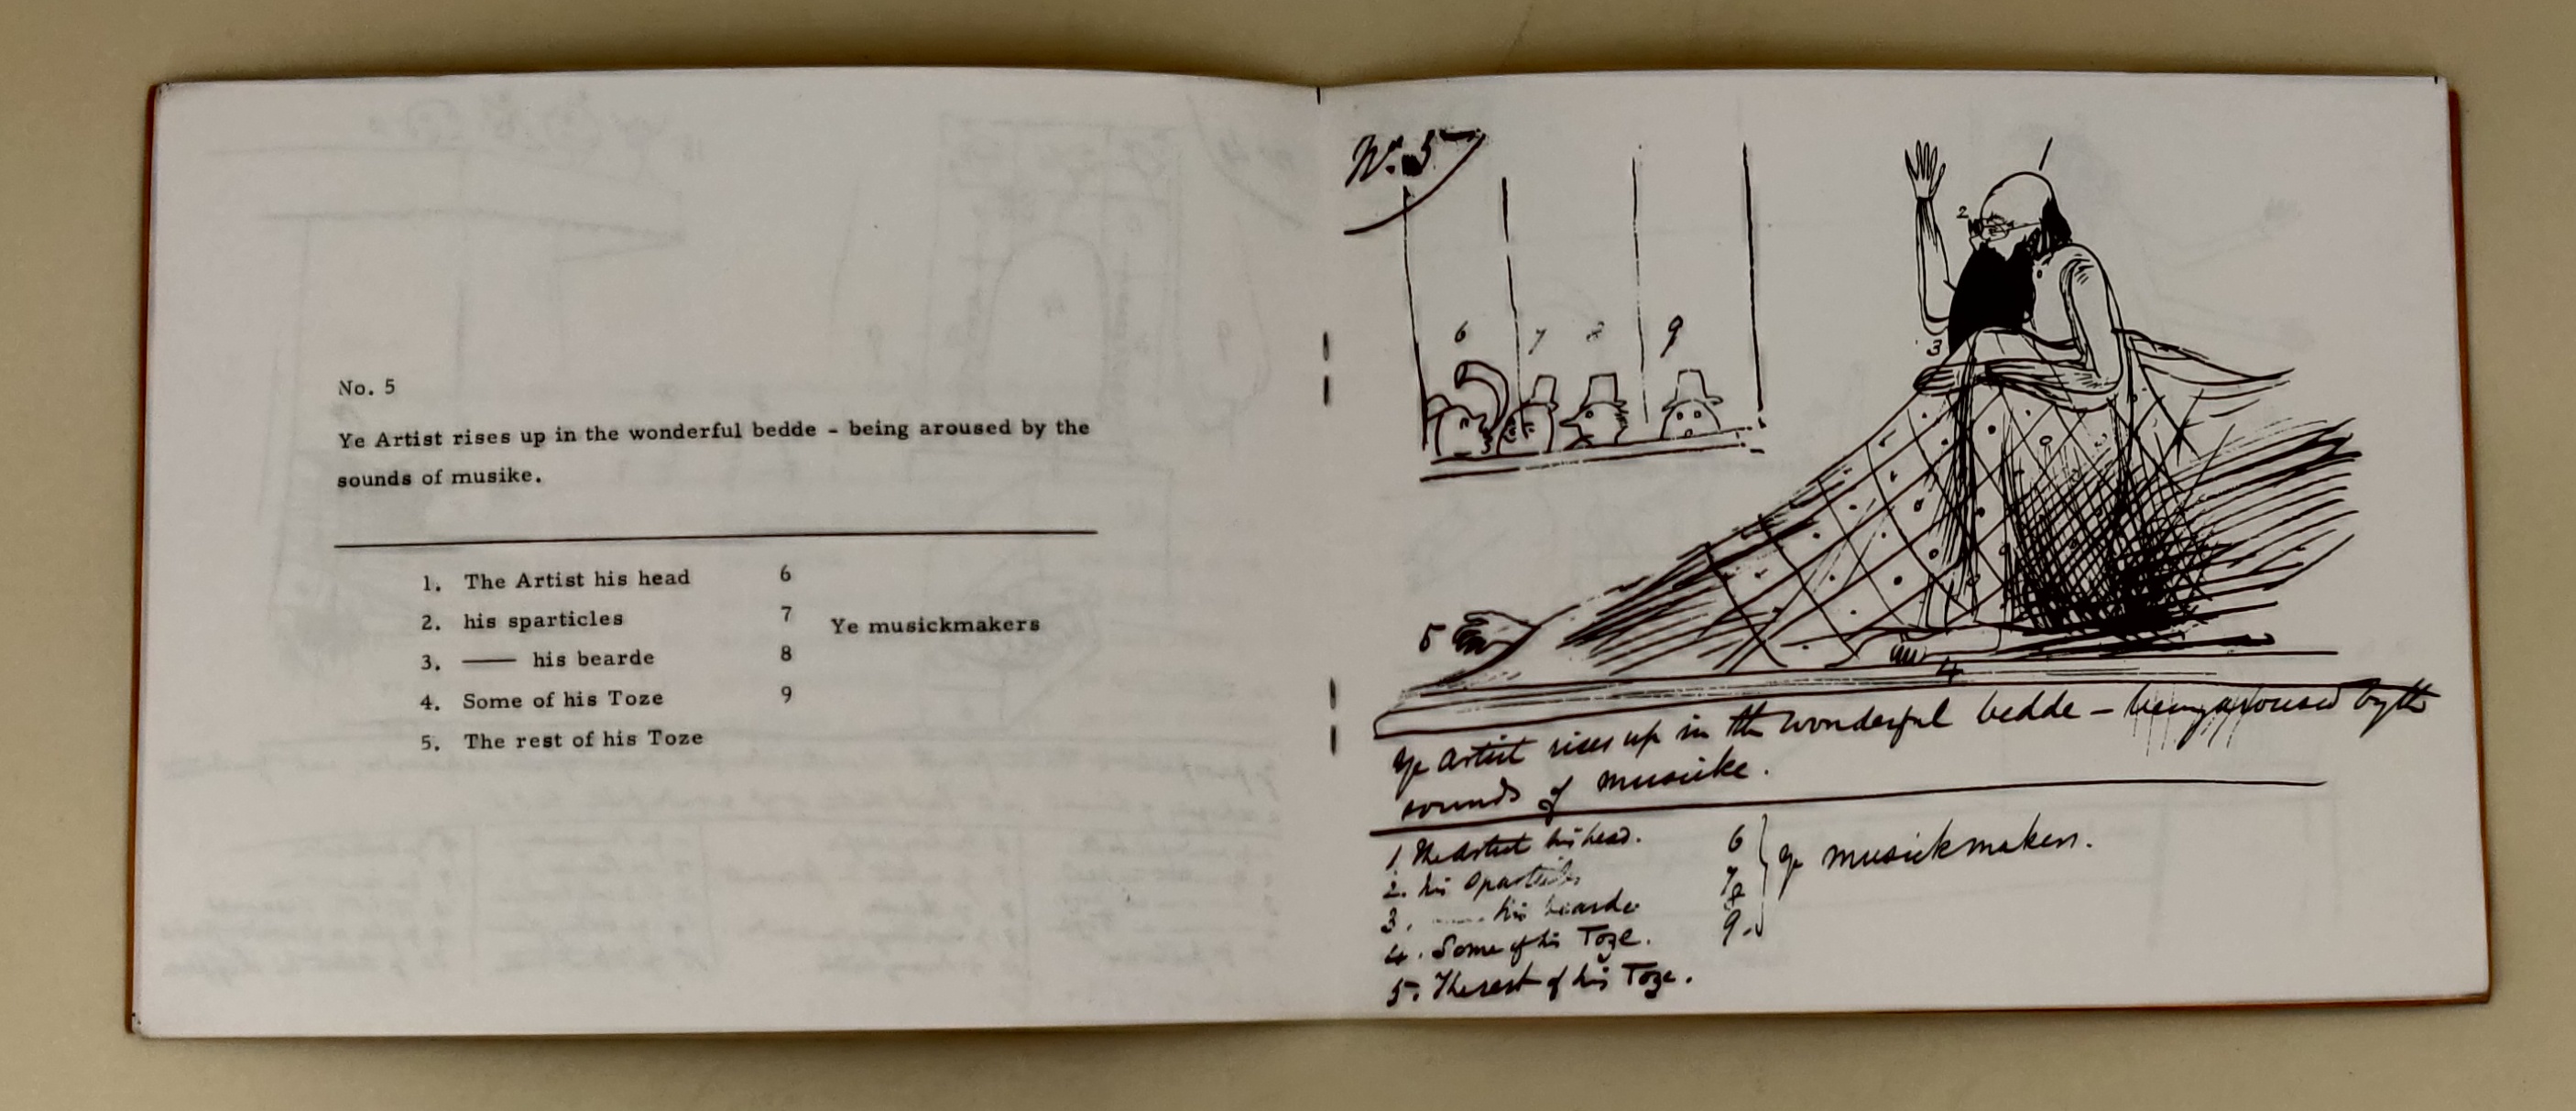 No. 5
Ye Artist rises up in the wonderful bedde - being aroused by the
sounds of musike.
1. The Artist his head 6
2. his sparticles 7 Ye musickmakers
3. —— his bearde 8
4. Some of his Toze 9
5. The rest of his Toze
No. 5
2
6 7 8 9
3
5
4
Ye Artist rises up in the wonderful bedde – being aroused by the
sounds of musicke.
1. The Artist his head. 6
2. his sparticles 7 ye musickmakers.
3. —— his bearde 8
4. Some of his Toze. 9.
5. The rest of his Toze.